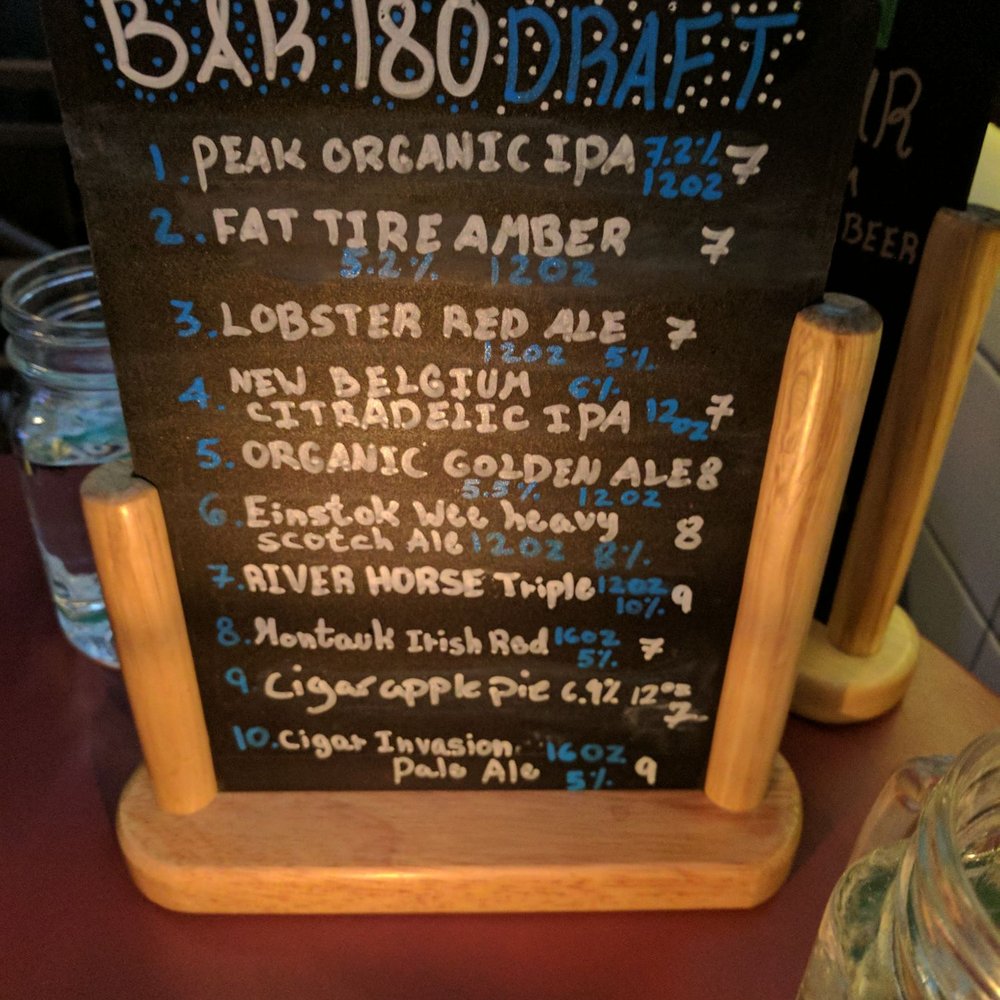 BAR 180 DRAFT
1. PEAK ORGANIC IPA 7.2% 7
12OZ
2. FAT TIRE AMBER 7
5.2% 12OZ
3. LOBSTER RED ALE 7
12OZ 5%
4. NEW BELGIUM 6%
CITRADELIC IPA 12OZ 7
5. ORGANIC GOLDEN ALE 8
5.5% 12OZ
6. Einstok Wee heavy
scotch Ale 12OZ 8% 8
7. RIVER HORSE Triple 12OZ 9
10%
8. Montauk Irish Red 16OZ 7
5%
9. Cigar apple pie 6.9% 12OZ
7
10. Cigar Invasion 16OZ
Pale Ale 5% 9
BEER